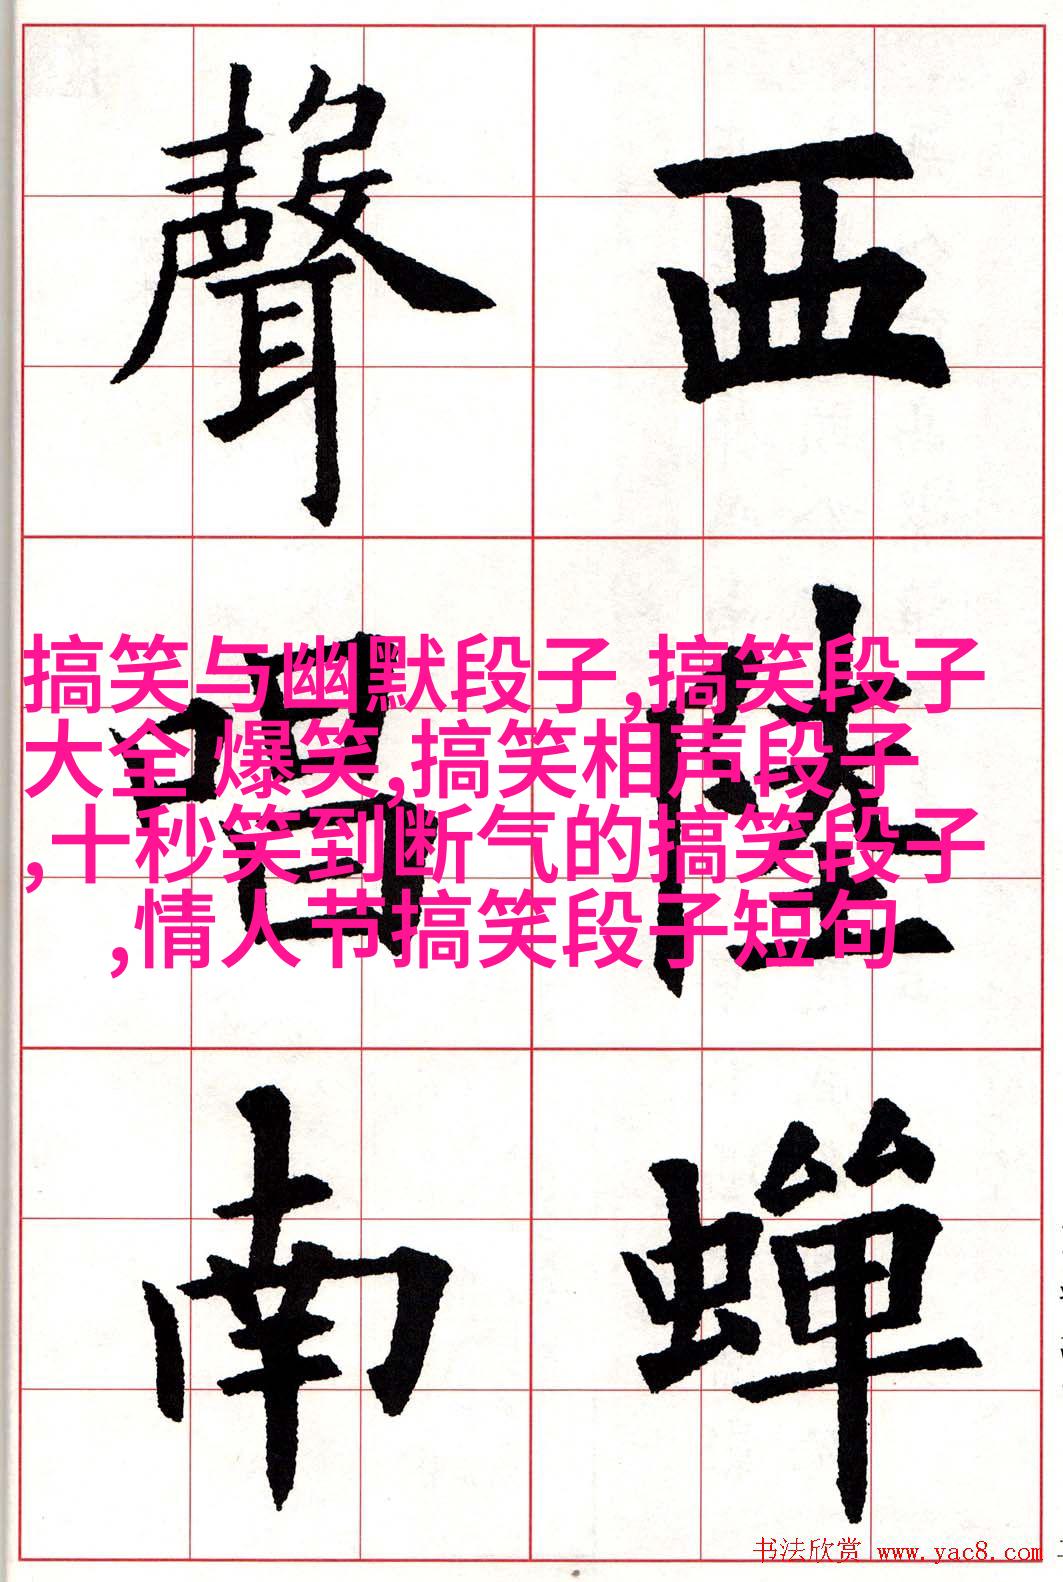 西陸蟬
聲唱南
搞笑与幽默段子,搞笑段子
大全 爆笑,搞笑相声段子
,十秒笑到断气的搞笑段子
,情人节搞笑段子短句
书法欣赏 www.yac8.com